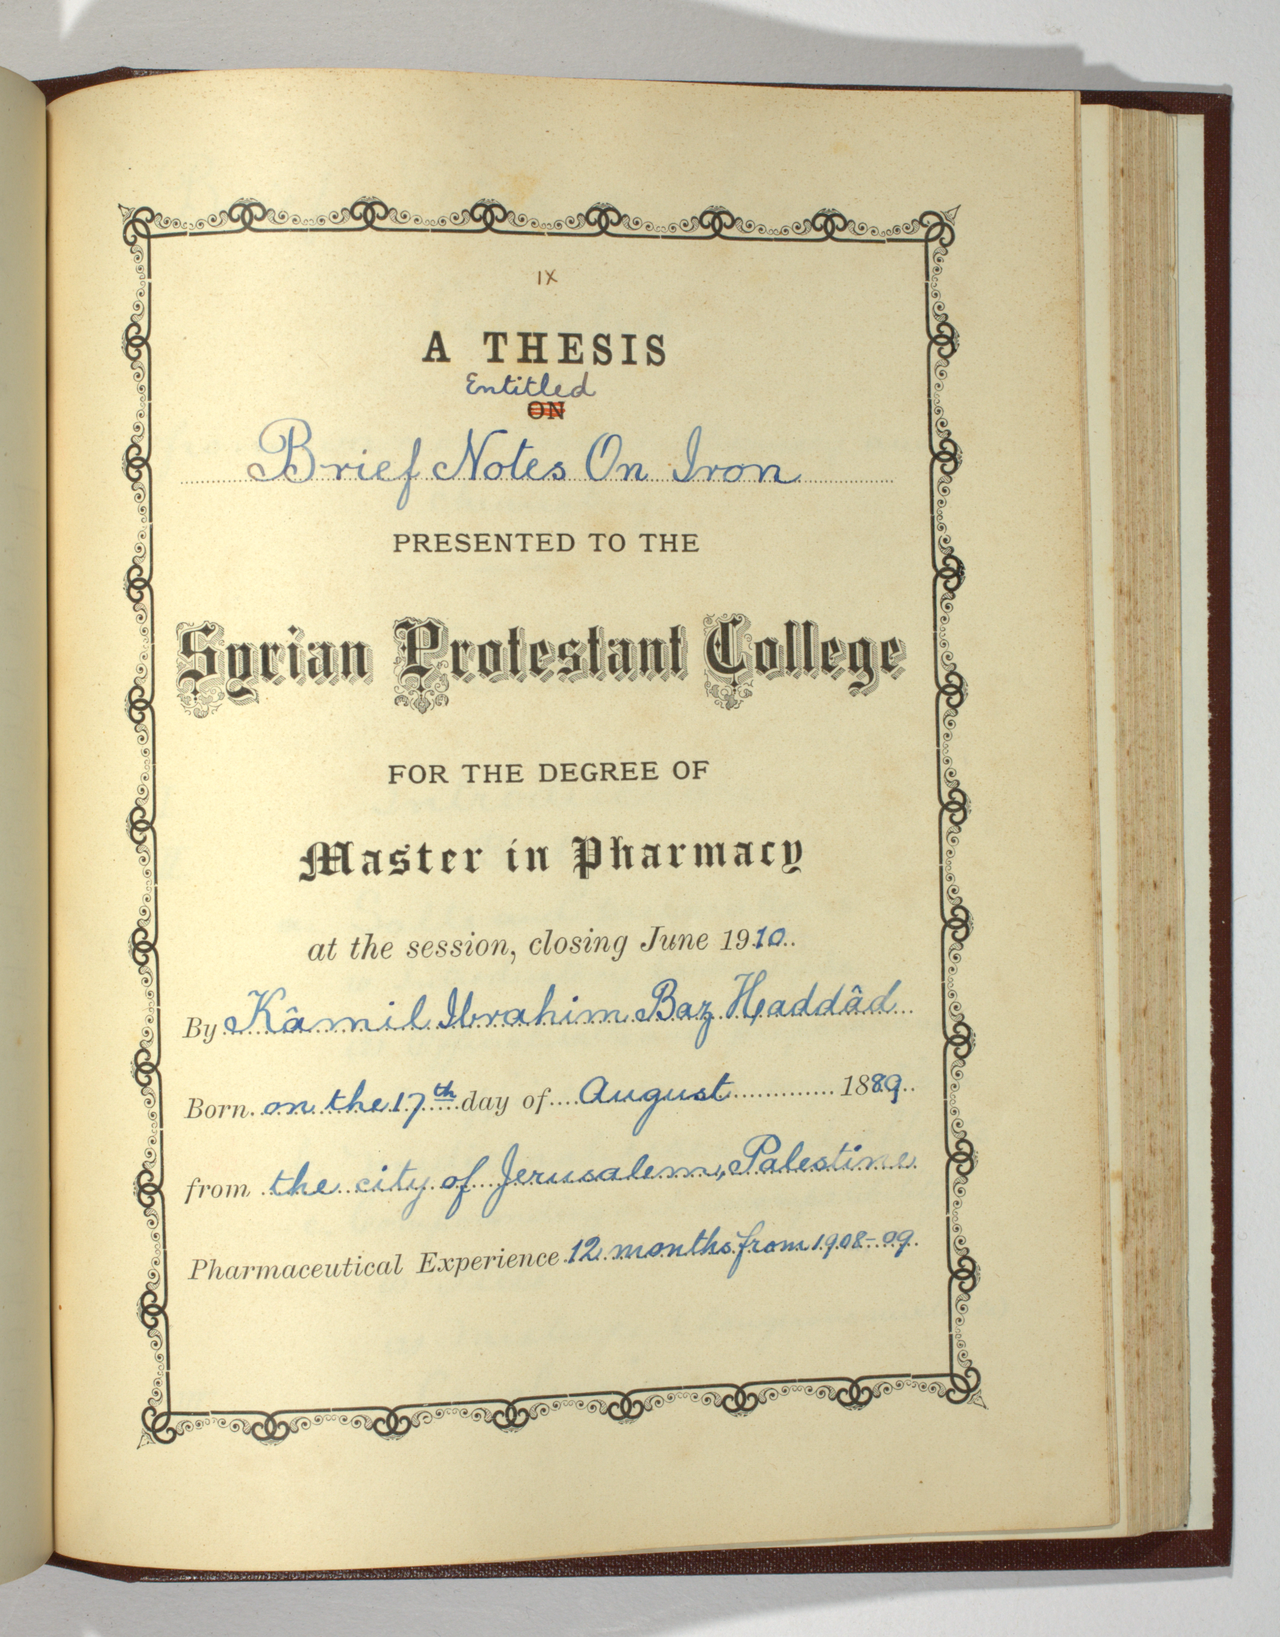 IX
A THESIS
Entitled
ON
Brief Notes On Iron
PRESENTED TO THE
Syrian Protestant College
FOR THE DEGREE OF
Master in Pharmacy
at the session, closing June 1910
By Kâmil Ibrahim Baz Haddâd
Born on the 17th day of August 1889
from the city of Jerusalem, Palestine
Pharmaceutical Experience 12 months from 1908-09